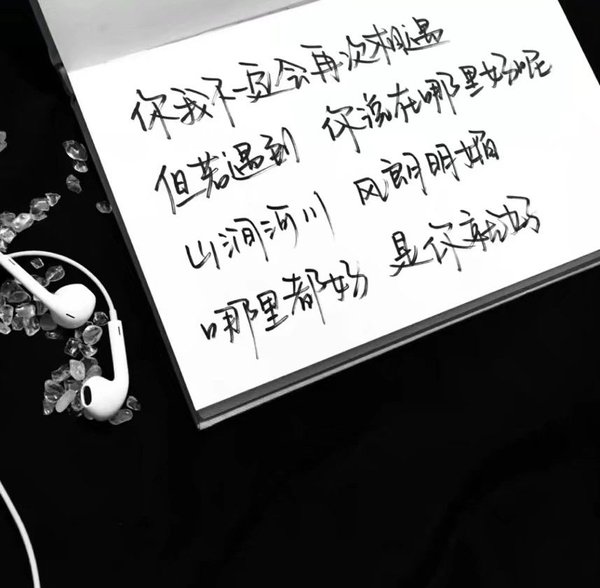 你我不一定会再次相遇
但若遇到 你说在哪里好呢
山涧河川 风朗明媚
哪里都好 是你就好